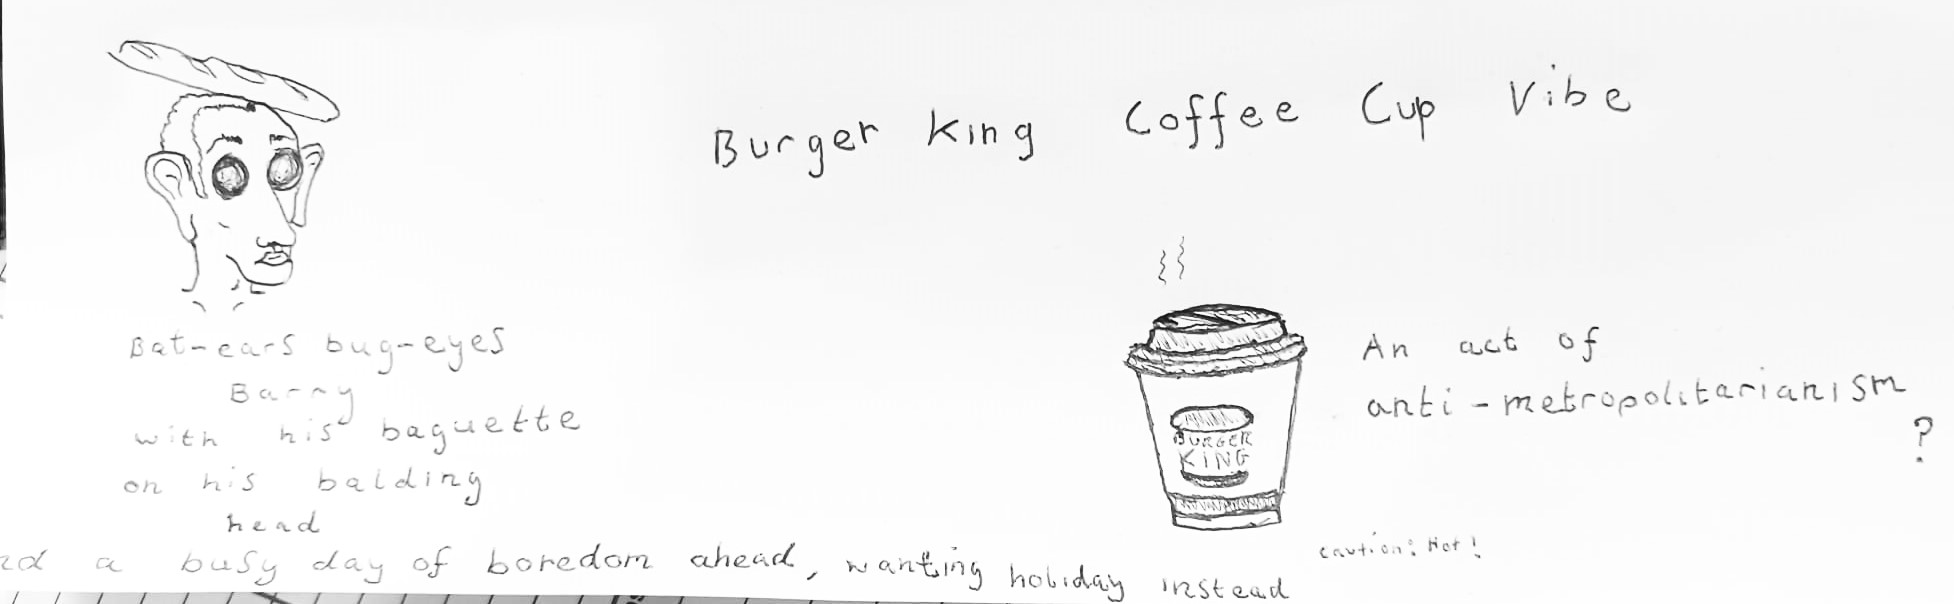 Burger King Coffee Cup Vibe
Bat-ears bug-eyes
Barry
with his baguette
on his balding
head
a busy day of boredom ahead, wanting holiday instead
BURGER
KING
An act of
anti-metropolitarianism
?
caution: Hot!